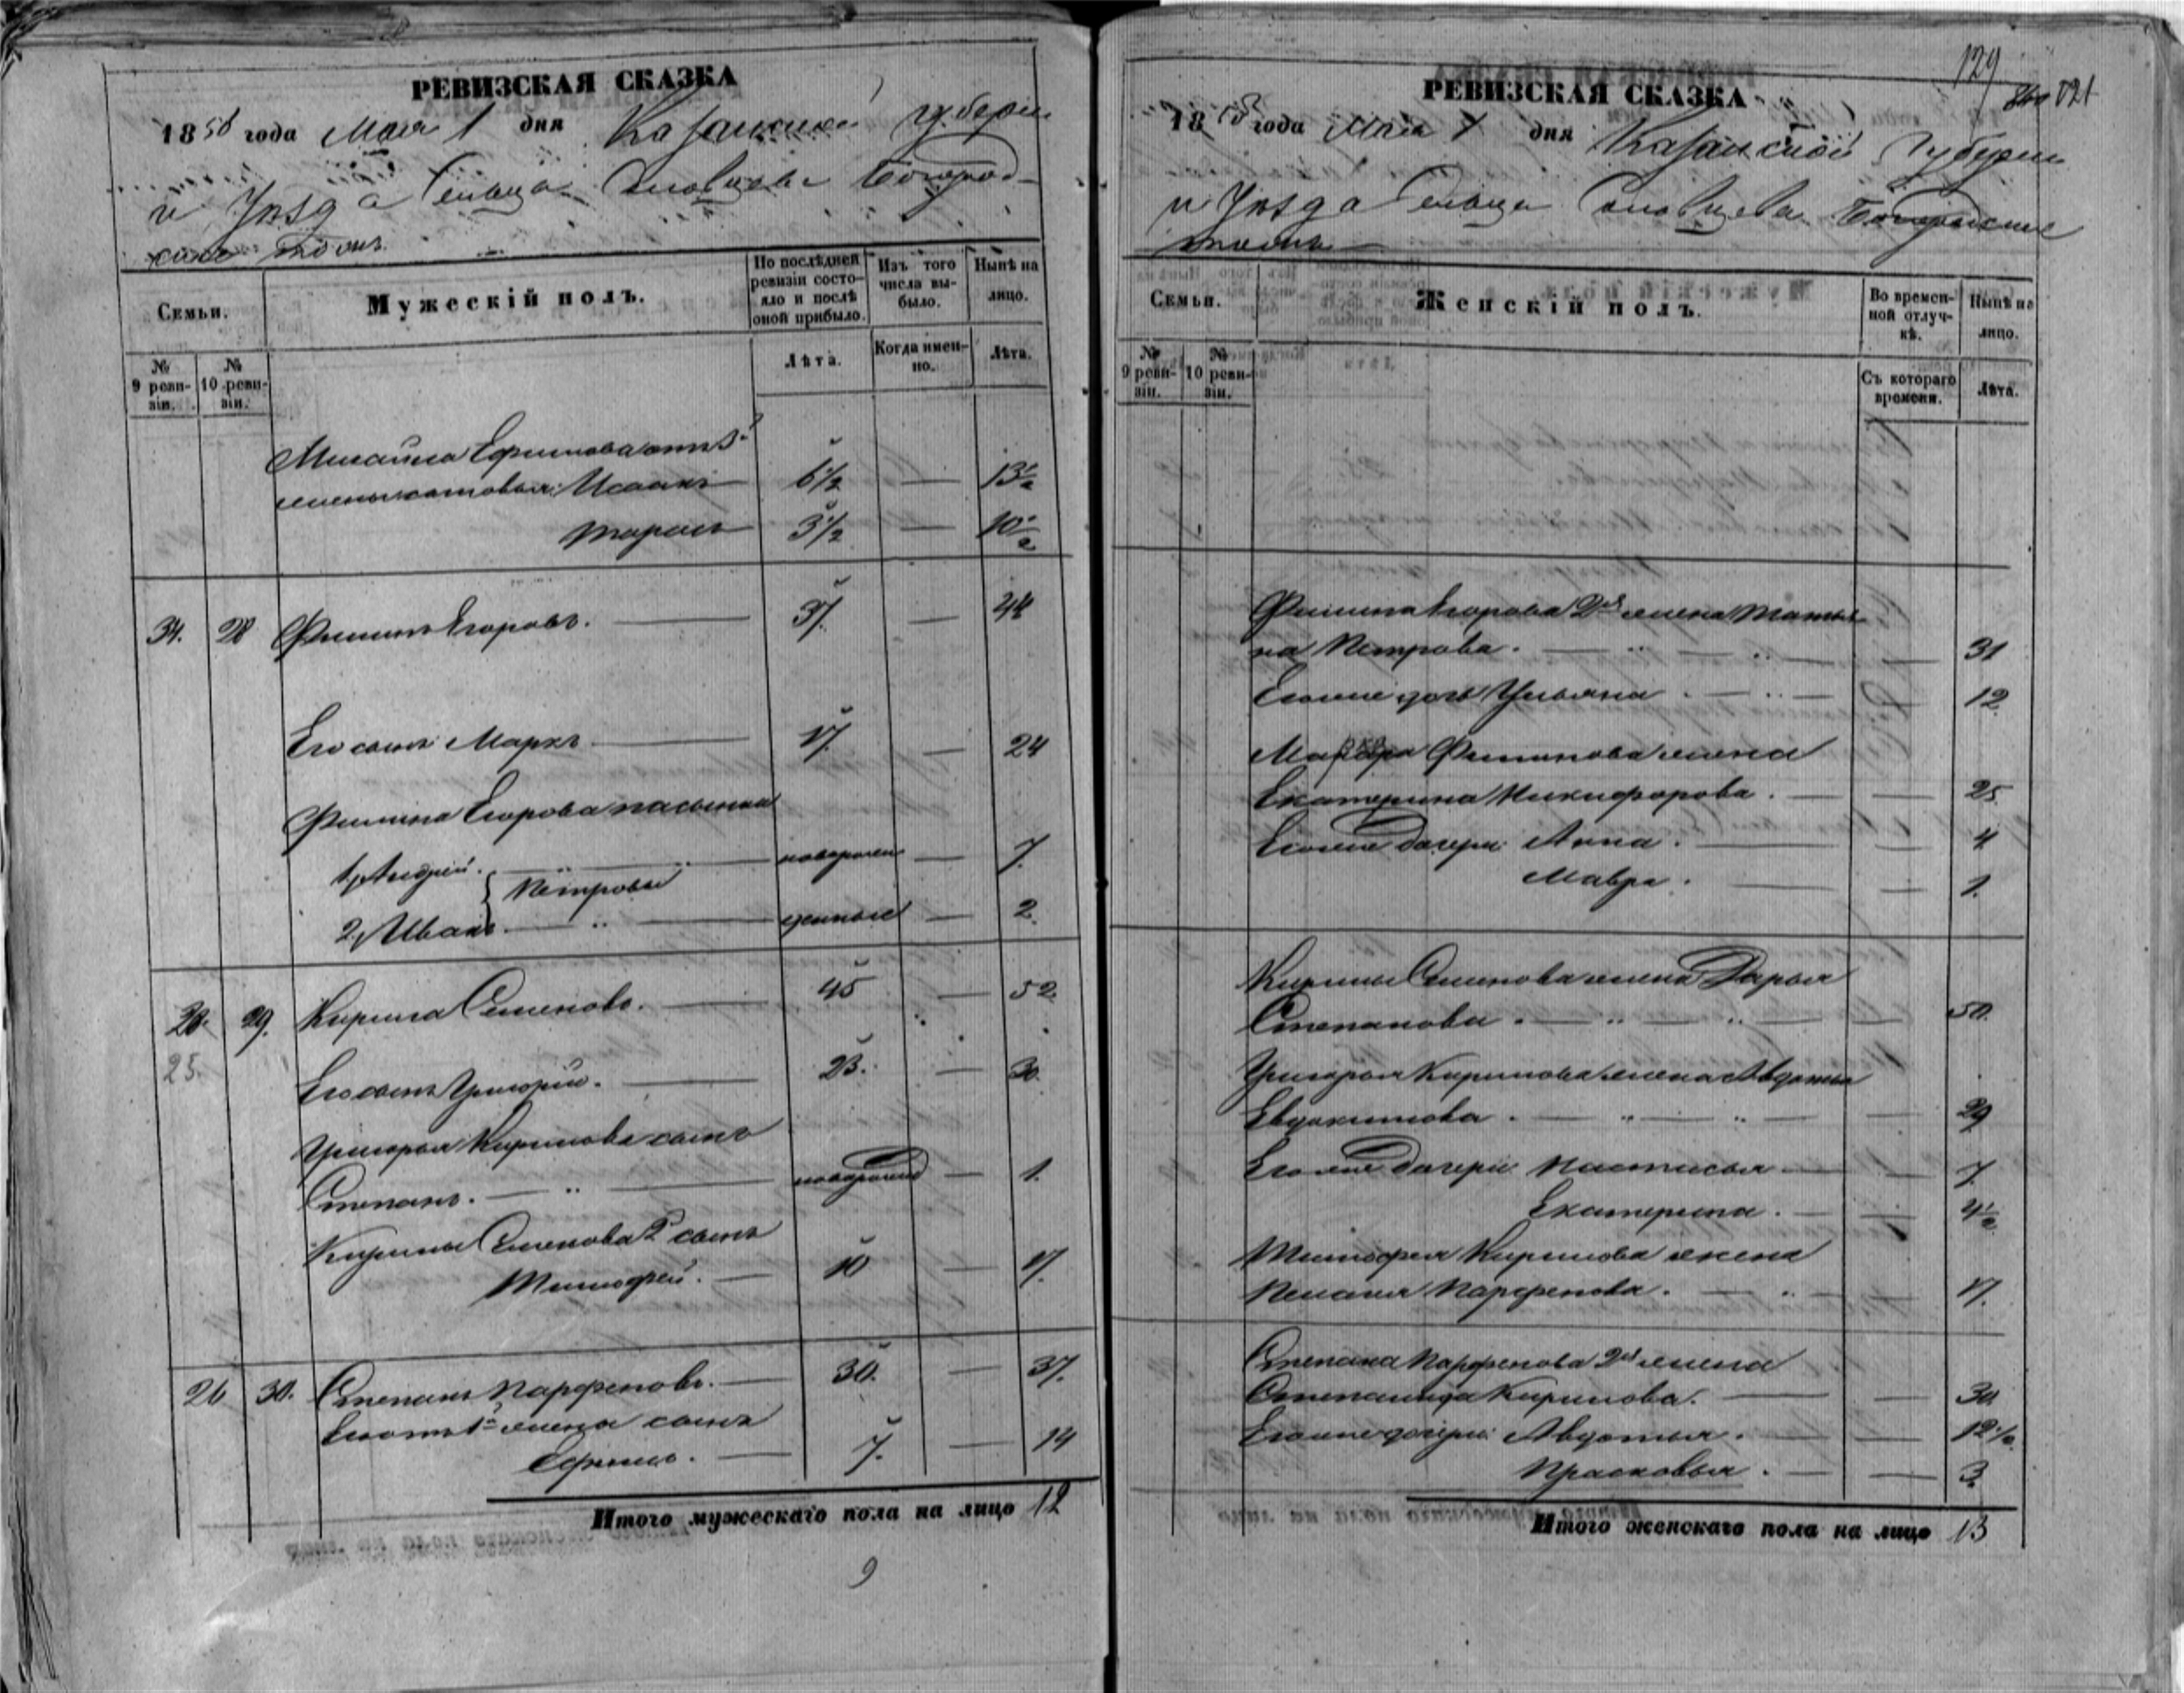 РЕВИЗСКАЯ СКАЗКА
1858 года Мая 1 дня Казанской губерни
и Уезда Сельца Богород-
ское тожъ
Семьи.
Мужескій полъ.
По послѣдней ревизіи состояло и послѣ оной прибыло.
Изъ того числа выбыло.
Нынѣ на лицо.
№ 9 ревизіи.
№ 10 ревизіи.
Лѣта.
Когда именно.
Лѣта.
Михайла Ефимова отъ 3й
жены сыновья: Исаакъ 6 1/2 — 13 1/2
Тарасъ 3 1/2 — 10 1/2
34. 28 Филипъ Егоровъ. — 37. — 44
Его сынъ Маркъ — 17. — 24
Филипа Егорова пасынки
1, Андрей. новорож — 7.
Петровы
2, Иванъ. денные — 2.
20. 29. Кирила Семеновъ. — 45 — 52.
25.
Его сынъ Григорій. — 23. — 30.
Григорья Кирилова сынъ
Степанъ. — новорожд — 1.
Кирилы Семенова 2й сынъ
Тимофей. — 10 — 17.
26 30. Степанъ Парфеновъ. — 30. — 37.
Его отъ 1й жены сынъ
Ефимъ. — 7. — 14
Итого мужескаго пола на лицо 12
9
129
821
РЕВИЗСКАЯ СКАЗКА
1858 года Мая 1 дня Казанской Губерни
и Уезда Сельца Богородское
тожъ
Семьи.
Женскій полъ.
Во временной отлучкѣ.
Нынѣ на лицо.
№ 9 ревизіи.
№ 10 ревизіи.
Съ котораго времени.
Лѣта.
Филипа Егорова 2я жена Татья
на Петрова. — 31
Его же дочь Ульяна. — 12
Марка Филипова жена
Екатерина Никифорова. — 25
Его же дочери: Анна. — 4
Мавра. — 1.
Кирилы Семенова жена Дарья
Степанова. — 50.
Григорья Кирилова жена Авдотья
Евдокимова. — 29
Его же дочери: Настасья — 7.
Екатерина. — 4 1/2
Тимофея Кирилова жена
Пелагея Парфенова. — 17.
Степана Парфенова 2я жена
Степанида Кирилова. — 30
Его же дочери: Авдотья. — 12 1/2
Прасковья. — 3
Итого женскаго пола на лицо 13